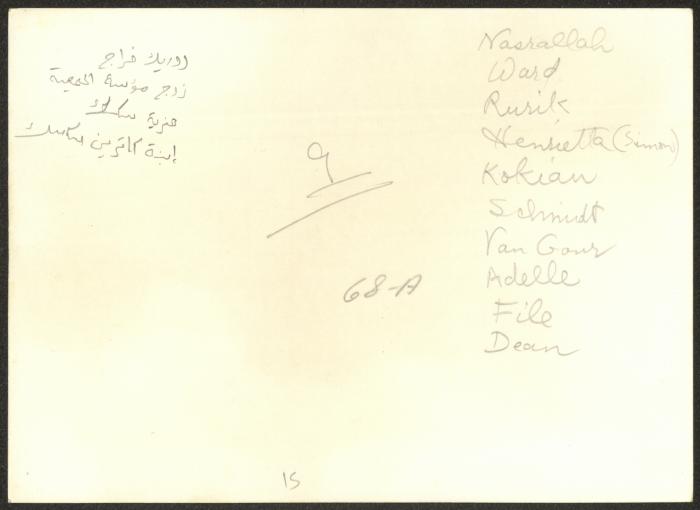 روريك فراج
زوج مؤسسة الجمعية
هنرية سكسك
إبنة كاترين سكسك
9
68-A
15
Nasrallah
Ward
Rurik
Henrietta (Simon)
Kokian
Schmidt
Van Gour
Adelle
File
Dean